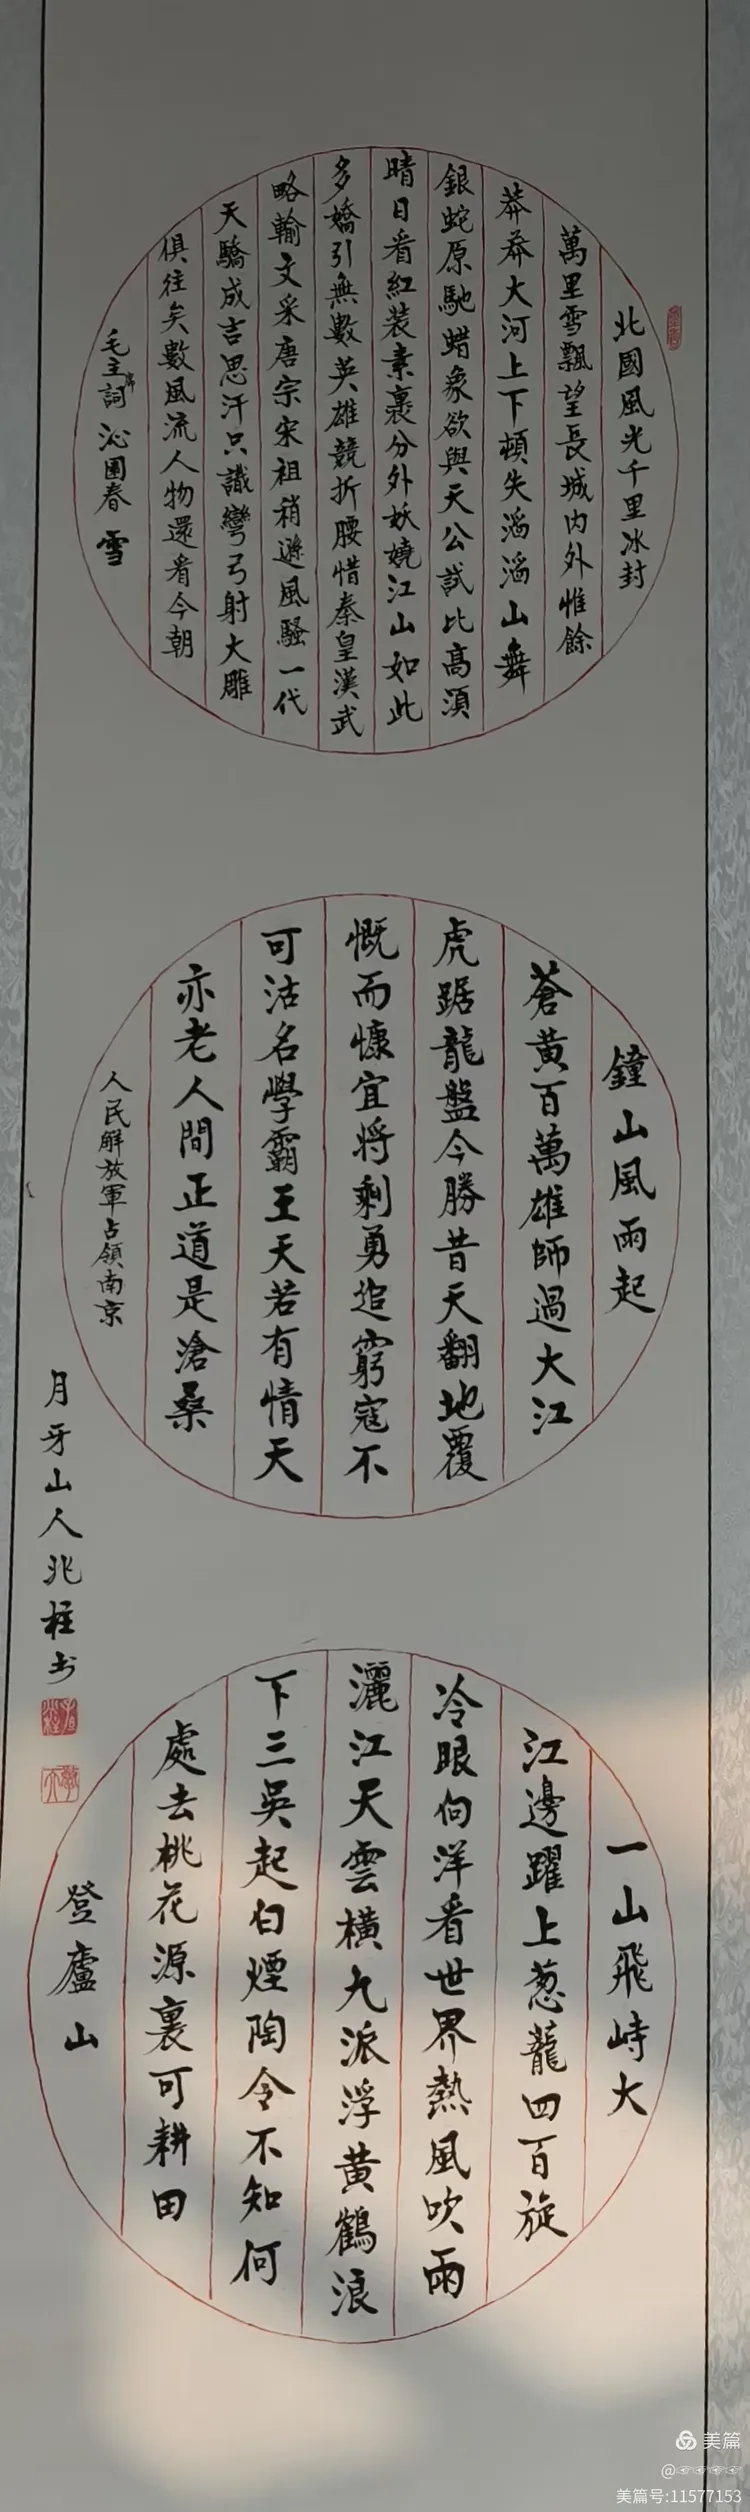 北國風光千里冰封
萬里雪飄望長城内外惟餘
莽莽大河上下頓失滔滔山舞
銀蛇原馳蜡象欲與天公試比高須
晴日看紅装素裹分外妖嬈江山如此
多嬌引無數英雄競折腰惜秦皇漢武
略輸文采唐宗宋祖稍遜風騷一代
天驕成吉思汗只識彎弓射大雕
俱往矣數風流人物還看今朝
毛主席詞 沁園春 雪
鐘山風雨起
蒼黄百萬雄師過大江
虎踞龍盤今勝昔天翻地覆
慨而慷宜将剩勇追窮寇不
可沽名學霸王天若有情天
亦老人間正道是滄桑
人民解放軍占領南京
月牙山人兆柱书
一山飛峙大
江邊躍上葱蘢四百旋
冷眼向洋看世界熱風吹雨
灑江天雲橫九派浮黄鶴浪
下三吳起白煙陶令不知何
處去桃花源裏可耕田
登廬山
美篇
美篇号:11577153